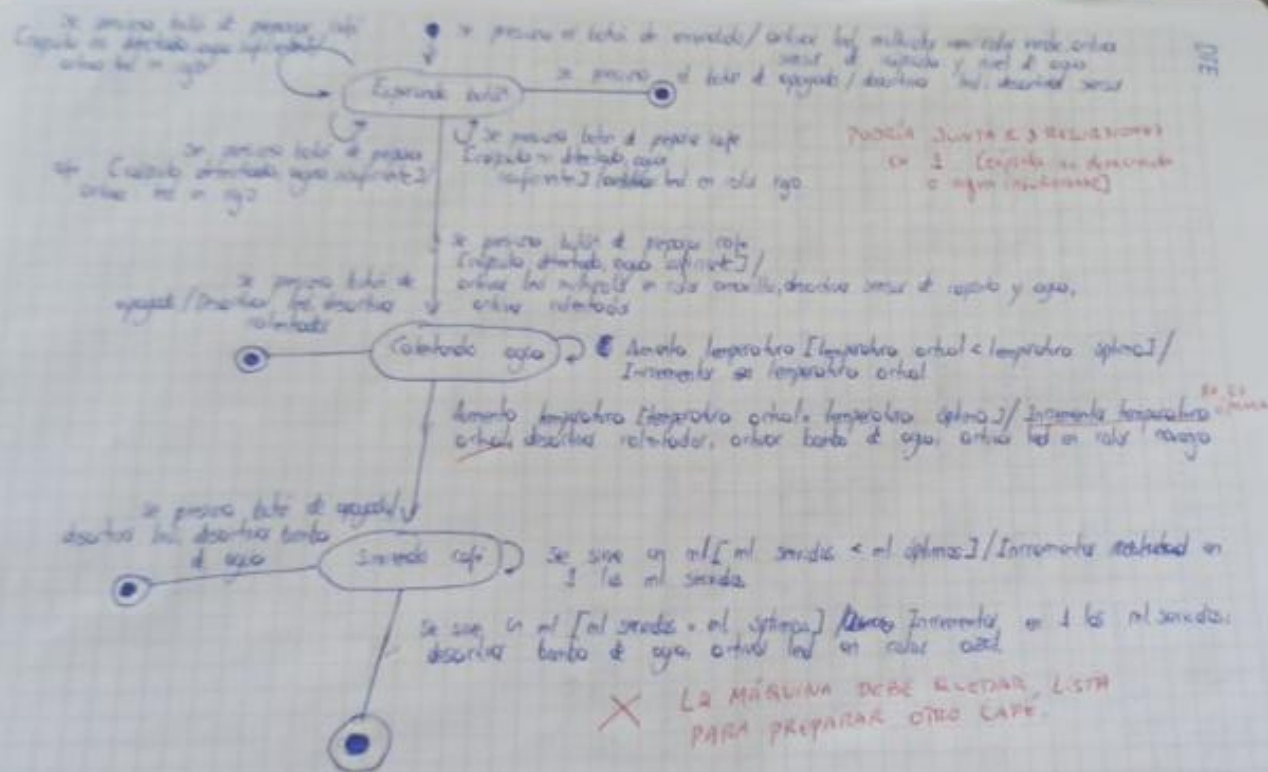 Se presiona botón de preparar café
[cápsula no detectada, agua suficiente]/
activa led en rojo
Se presiona el botón de encendido/ activar led multicolor con color verde, activar
sensor de cápsula y nivel de agua
Se presiona el botón de apagado / desactiva led, desactiva sensor
Esperando botón
Se presiona botón de preparar
café [cápsula detectada, agua insuficiente]/
activa led en rojo
Se presiona botón de preparar café
[cápsula no detectada, agua
insuficiente] / led en color rojo
PODRÍA JUNTAR 3
en 1 [cápsula no detectada
o agua insuficiente]
Se presiona botón de preparar café
[cápsula detectada, agua suficiente]/
activa led en color amarillo, desactiva sensor de cápsula y agua,
activa calentador
Se presiona botón de
apagado/Desactiva led, desactiva
calentador
Calentando agua
Aumenta temperatura [temperatura actual < temperatura óptima]/
Incrementar temperatura actual
Aumenta temperatura [temperatura actual = temperatura óptima]/ Incrementa temperatura
actual, desactiva calentador, activar bomba de agua, activa led en color naranja
Se presiona botón de apagado/
desactiva led, desactiva bomba
de agua
Sirviendo café
Se sirve un ml [ml servidos < ml óptimos]/Incrementar en
1 los ml servidos
Se sirve un ml [ml servidos = ml óptimos] / Incrementar en 1 los ml servidos,
desactivar bomba de agua, activar led en color azul
LA MÁQUINA DEBE QUEDAR LISTA
PARA PREPARAR OTRO CAFÉ.